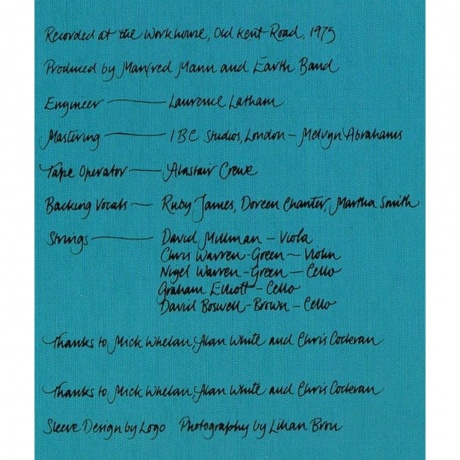 Recorded at the Workhouse, Old Kent Road, 1975
Produced by Manfred Mann and Earth Band
Engineer — Laurence Latham
Mastering — IBC Studios, London – Melvyn Abrahams
Tape Operator — Alastair Crewe
Backing Vocals — Ruby James, Doreen Chanter, Martha Smith
Strings — David Millman – Viola
Chris Warren-Green – Violin
Nigel Warren-Green – Cello
Graham Elliott – Cello
David Boswell-Brown – Cello
Thanks to, Mick Whelan, Alan White and Chris Cockran
Thanks to, Mick Whelan, Alan White and Chris Cockran
Sleeve Design by Logo Photography by Lilian Bron